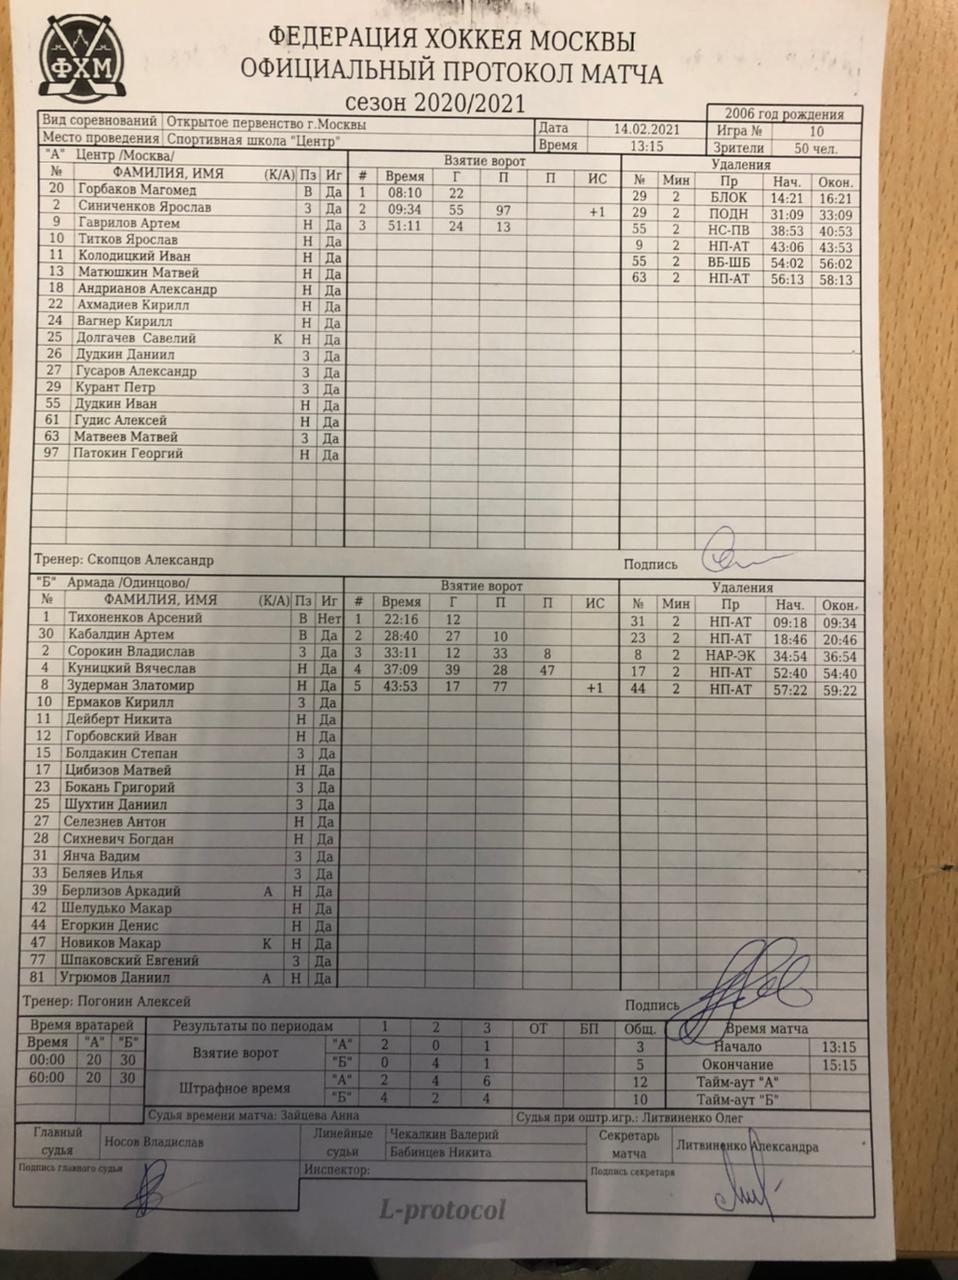 ФЕДЕРАЦИЯ ХОККЕЯ МОСКВЫ
ФХМ
ОФИЦИАЛЬНЫЙ ПРОТОКОЛ МАТЧА
сезон 2020/2021
2006 год рождения
Вид соревнований Открытое первенство г.Москвы Дата 14.02.2021 Игра № 10
Место проведения Спортивная школа "Центр" Время 13:15 Зрители 50 чел.
"А" Центр /Москва/ Взятие ворот Удаления
№ ФАМИЛИЯ, ИМЯ (К/А) Пз Иг # Время Г П П ИС № Мин Пр Нач. Окон.
20 Горбаков Магомед В Да 1 08:10 22 29 2 БЛОК 14:21 16:21
2 Синиченков Ярослав З Да 2 09:34 55 97 +1 29 2 ПОДН 31:09 33:09
9 Гаврилов Артем Н Да 3 51:11 24 13 55 2 НС-ПВ 38:53 40:53
10 Титков Ярослав Н Да 9 2 НП-АТ 43:06 43:53
11 Колодицкий Иван Н Да 55 2 ВБ-ШБ 54:02 56:02
13 Матюшкин Матвей Н Да 63 2 НП-АТ 56:13 58:13
18 Андрианов Александр Н Да
22 Ахмадиев Кирилл Н Да
24 Вагнер Кирилл Н Да
25 Долгачев Савелий К Н Да
26 Дудкин Даниил З Да
27 Гусаров Александр З Да
29 Курант Петр З Да
55 Дудкин Иван Н Да
61 Гудис Алексей Н Да
63 Матвеев Матвей З Да
97 Патокин Георгий Н Да
Тренер: Скопцов Александр Подпись
"Б" Армада /Одинцово/ Взятие ворот Удаления
№ ФАМИЛИЯ, ИМЯ (К/А) Пз Иг # Время Г П П ИС № Мин Пр Нач. Окон.
1 Тихоненков Арсений В Нет 1 22:16 12 31 2 НП-АТ 09:18 09:34
30 Кабалдин Артем В Да 2 28:40 27 10 23 2 НП-АТ 18:46 20:46
2 Сорокин Владислав З Да 3 33:11 12 33 8 8 2 НАР-ЭК 34:54 36:54
4 Куницкий Вячеслав Н Да 4 37:09 39 28 47 17 2 НП-АТ 52:40 54:40
8 Зудерман Златомир Н Да 5 43:53 17 77 +1 44 2 НП-АТ 57:22 59:22
10 Ермаков Кирилл З Да
11 Дейберт Никита Н Да
12 Горбовский Иван Н Да
15 Болдакин Степан З Да
17 Цибизов Матвей Н Да
23 Бокань Григорий З Да
25 Шухтин Даниил З Да
27 Селезнев Антон Н Да
28 Сихневич Богдан Н Да
31 Янча Вадим З Да
33 Беляев Илья З Да
39 Берлизов Аркадий А Н Да
42 Шелудько Макар Н Да
44 Егоркин Денис Н Да
47 Новиков Макар К Н Да
77 Шпаковский Евгений З Да
81 Угрюмов Даниил А Н Да
Тренер: Погонин Алексей Подпись
Время вратарей Результаты по периодам 1 2 3 ОТ БП Общ. Время матча
Время "А" "Б" Взятие ворот "А" 2 0 1 3 Начало 13:15
00:00 20 30 "Б" 0 4 1 5 Окончание 15:15
60:00 20 30 Штрафное время "А" 2 4 6 12 Тайм-аут "А"
"Б" 4 2 4 10 Тайм-аут "Б"
Судья времени матча: Зайцева Анна Судья при оштр.игр.: Литвиненко Олег
Главный судья Носов Владислав Линейные судьи Чекалкин Валерий Бабинцев Никита Секретарь матча Литвиненко Александра
Подпись главного судьи Инспектор: Подпись секретаря
L-protocol